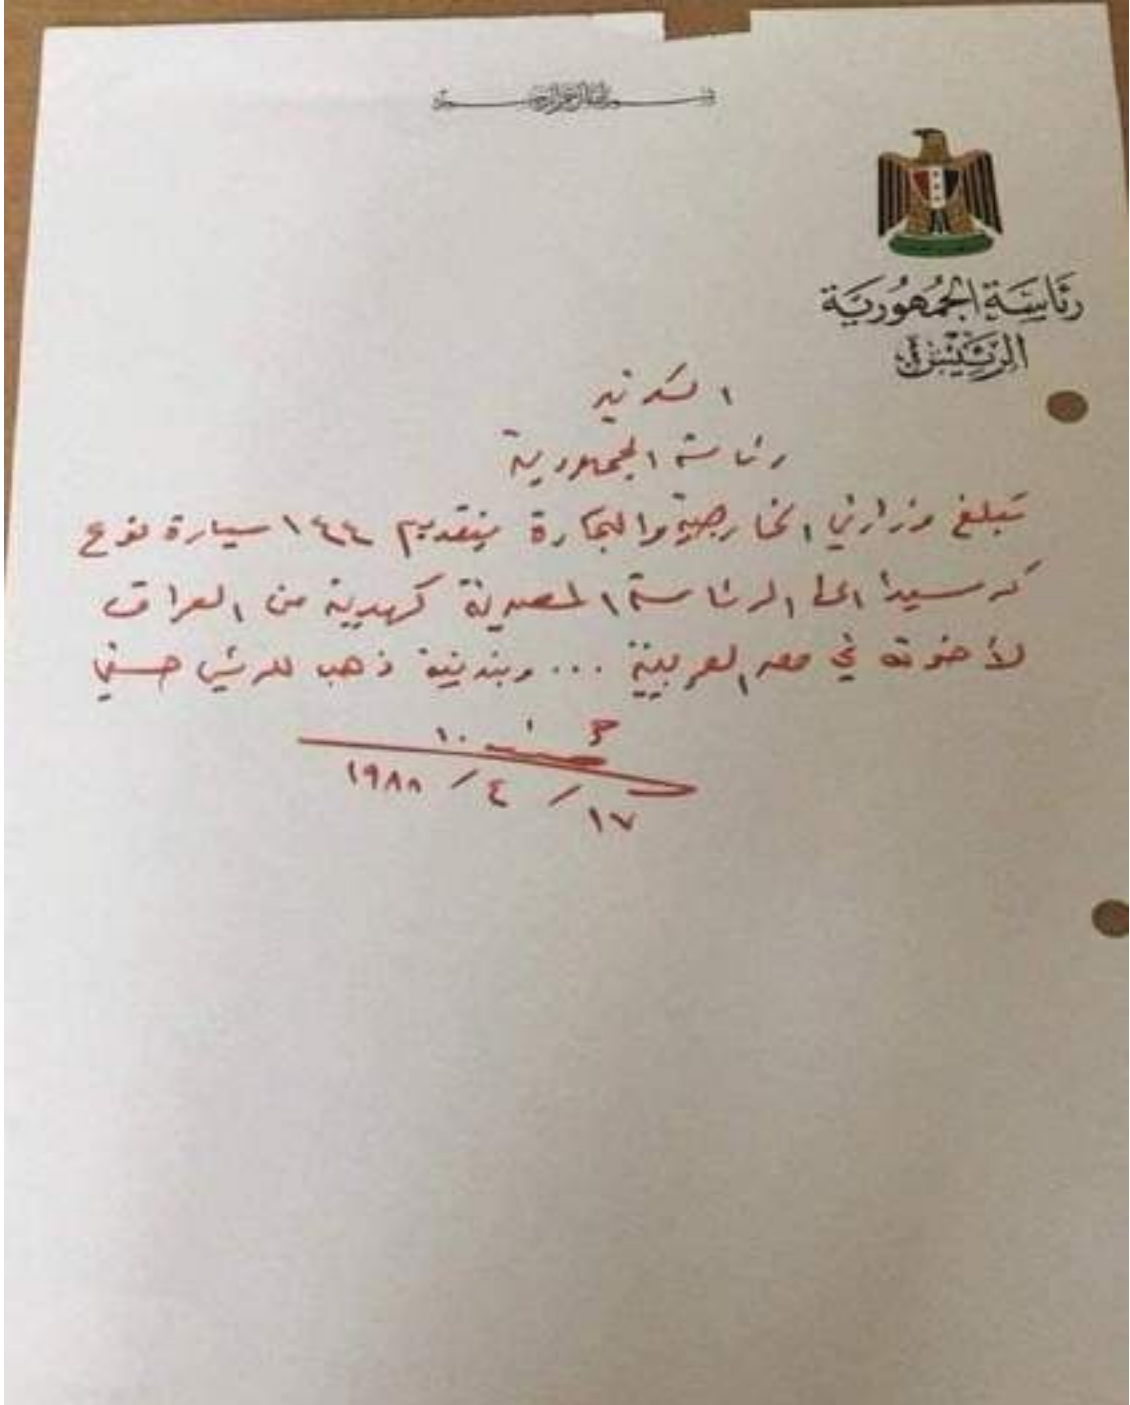 بسم الله الرحمن الرحيم
رئاسة الجمهورية
الرئيس
السيد
رئاسة الجمهورية
تبلغ وزارتي الخارجية والتجارة بتقديم ١٤٤ سيارة نوع
كرسيدا الى الرئاسة المصرية كهدية من العراق
لأخوته في مصر العربية ... وبندقية ذهب للرئيس حسني
١٧ / ٤ / ١٩٨٨